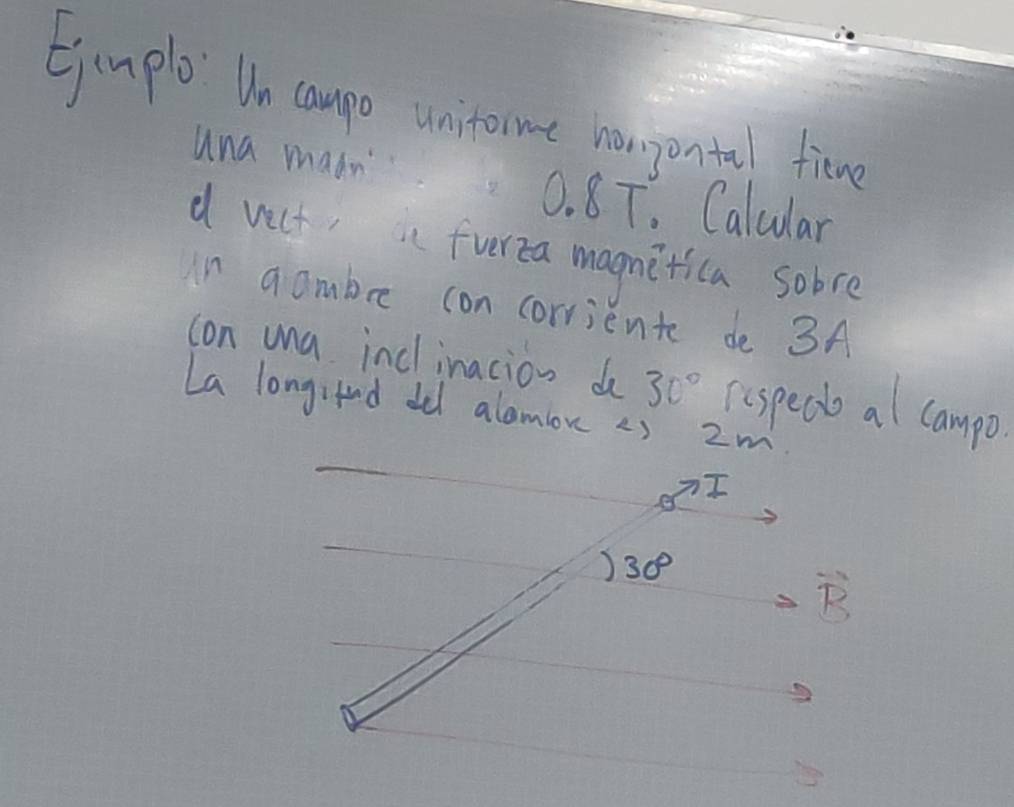 Ejemplo: Un campo uniforme horizontal tiene
una 0.8 T. Calcular
el fuerza magnética sobre
un alambre con corriente de 3A
con una inclinación de 30° respecto al campo.
La longitud del alambre es 2m.
I
30°
B